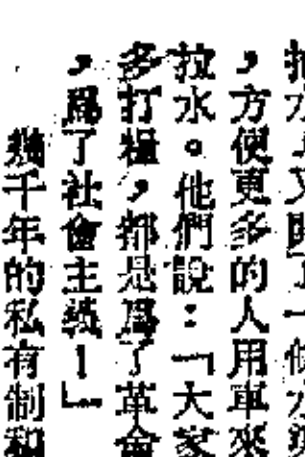 ，方便更多的人用車來
拉水。他們說：「大家
多打糧，都是爲了革命
，爲了社會主義！」
幾千年的私有制和